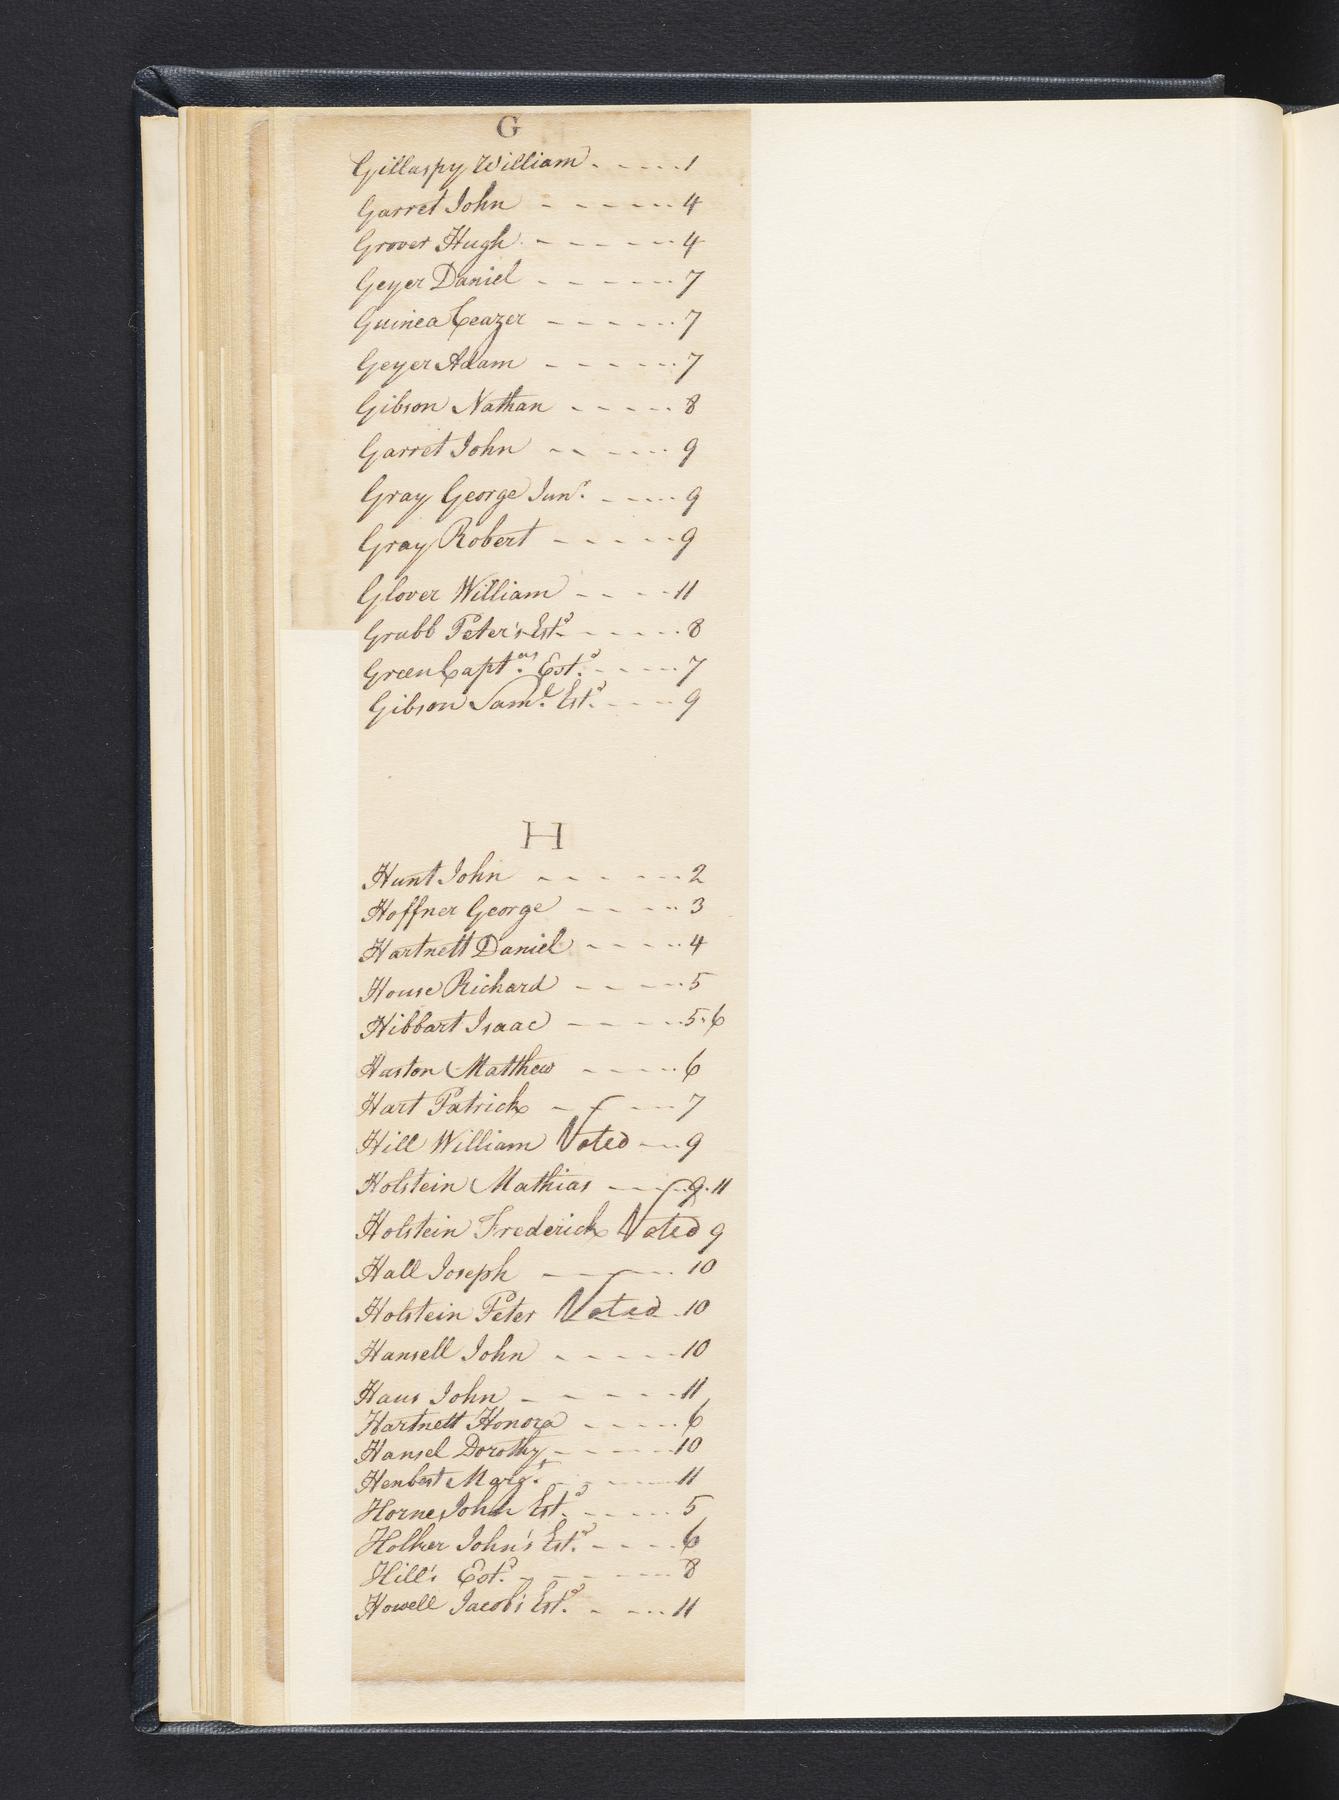 G
Gillaspy William - - - - - 1
Garret John - - - - - 4
Grover Hugh - - - - - - 4
Geyer Daniel - - - - - - 7
Guinea Ceazer - - - - - - 7
Geyer Adam - - - - - - 7
Gibson Nathan - - - - - 8
Garret John - - - - - - 9
Gray George Junr. - - - - 9
Gray Robert - - - - - 9
Glover William - - - - 11
Grubb Peter's Estd - - - - - 8
Green Capt.ns Estd. - - - - 7
Gibson Saml. Estd. - - - - 9
H
Hunt John - - - - - - 2
Hoffner George - - - - - 3
Hartnett Daniel - - - - - 4
House Richard - - - - - 5
Hibbart Isaac - - - - - 5.6
Haston Matthew - - - - - 6
Hart Patrick - - - - 7
Hill William Voted - - 9
Holstein Mathias - - - 9.11
Holstein Frederick Voted 9
Hall Joseph - - - - 10
Holstein Peter Voted - 10
Hansell John - - - - - 10
Haus John - - - - - 11
Hartnett Honora - - - - - 6
Hansel Dorothy - - - - - 10
Henbest Margt. - - - - - 11
Horne John Estd. - - - - - 5
Holker John's Estd. - - - - 6
Hill's Estd. - - - - - - 8
Howell Jacob's Estd. - - - - 11